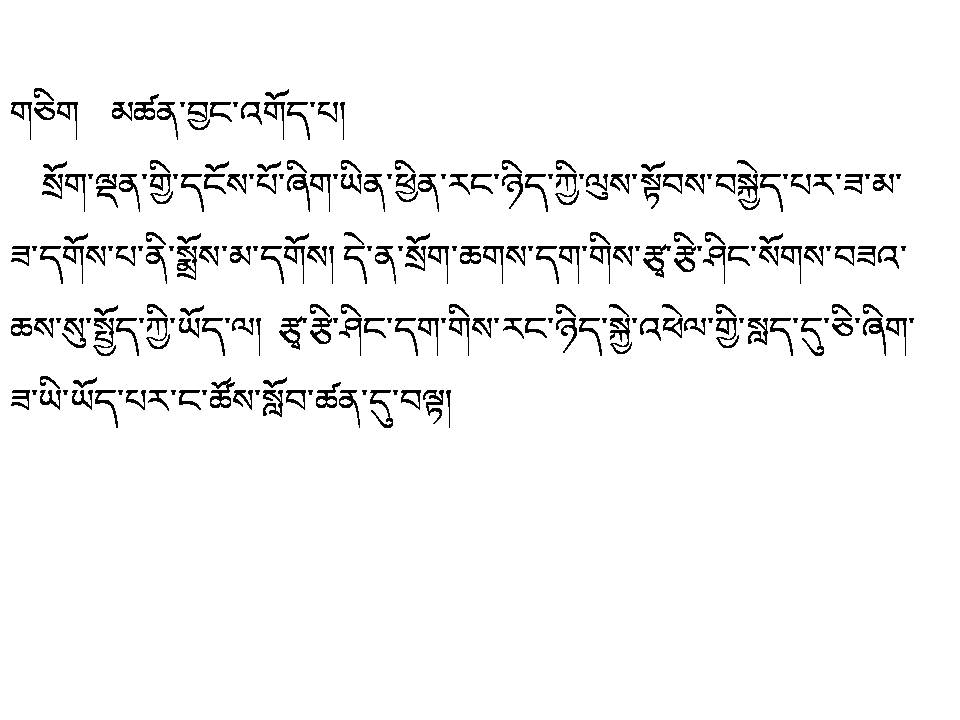 གཅིག མཚན་བྱང་འགོད་པ།
སྲོག་ལྡན་གྱི་དངོས་པོ་ཞིག་ཡིན་ཕྱིན་རང་ཉིད་ཀྱི་ལུས་སྟོབས་བསྐྱེད་པར་ཟ་མ་
ཟ་དགོས་པ་ནི་སྨྲོས་མ་དགོས། དེ་ན་སྲོག་ཆགས་དག་གིས་རྩྭ་རྩི་ཤིང་སོགས་བཟའ་
ཆས་སུ་སྤྱོད་ཀྱི་ཡོད་ལ། རྩྭ་རྩི་ཤིང་དག་གིས་རང་ཉིད་སྐྱེ་འཕེལ་གྱི་སླད་དུ་ཅི་ཞིག་
ཟ་ཡི་ཡོད་པར་ང་ཚོས་སློབ་ཚན་དུ་བལྟ།